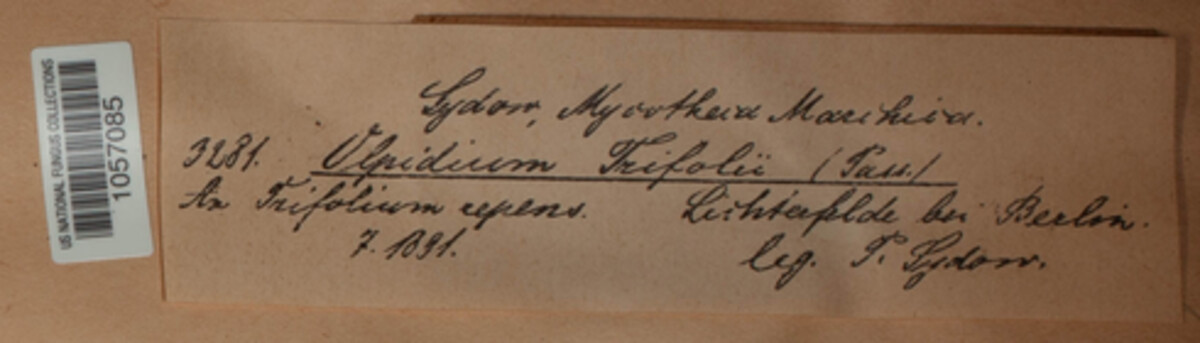 US NATIONAL FUNGUS COLLECTIONS
1057085
Sydow, Mycotheca Marchica.
3281. Olpidium Trifolii (Pass.)
An Trifolium repens. Lichterfelde bei Berlin.
7. 1891. leg. P. Sydow.